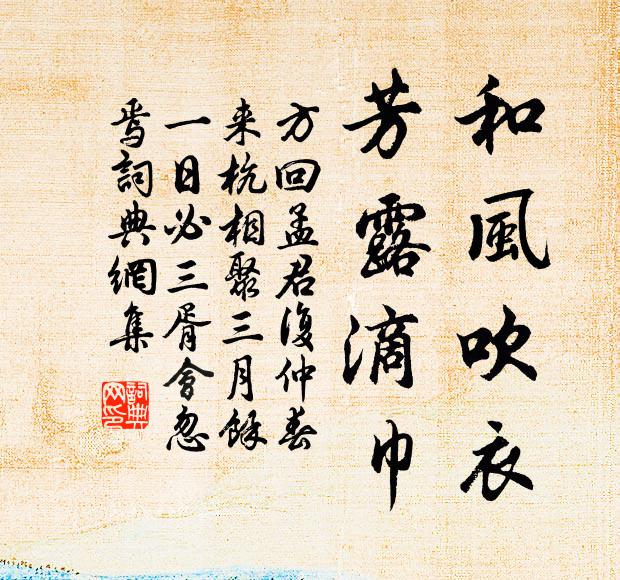 和風吹衣
芳露滴巾
方回孟君復仲春
来杭相聚三月餘
一日必三胥會忽
焉詞典網集
詞典網印